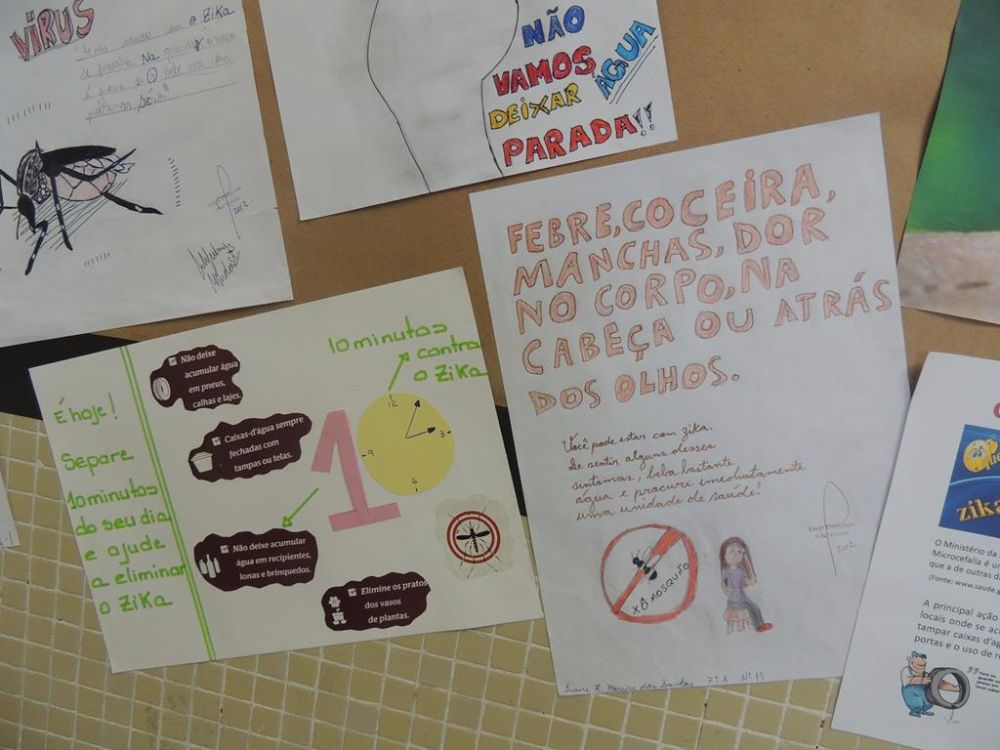 VÍRUS
NÃO
VAMOS
DEIXAR
ÁGUA
PARADA!!
2012
FEBRE, COCEIRA,
MANCHAS, DOR
NO CORPO, NA
CABEÇA OU ATRÁS
DOS OLHOS.
Você pode estar com zika.
Se sentir alguns desses
sintomas, beba bastante
água e procure imediatamente
uma unidade de saúde!
XÔ MOSQUITO
2012
7ªA Nº15
É hoje!
Separe
10 minutos
do seu dia
e ajude
a eliminar
o Zika
Não deixe
acumular água
em pneus,
calhas e lajes.
Caixas-d'água sempre
fechadas com
tampas ou telas.
Não deixe acumular
água em recipientes,
lonas e brinquedos.
Elimine os pratos
dos vasos
de plantas.
10 minutos
contra
o Zika
1
12
3
6
9
zika
O Ministério da
Microcefalia é un
que a de outras d
(Fonte: www.saude.
A principal ação
locais onde se ac
tampar caixas d'ág
portas e o uso de re